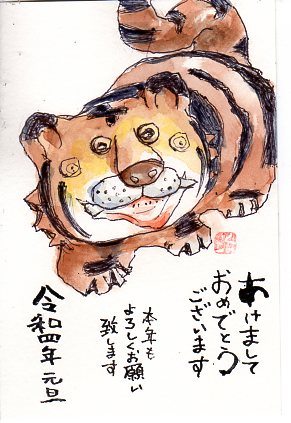 あけまして
おめでとう
ございます
本年も
よろしくお願い
致します
令和四年 元旦